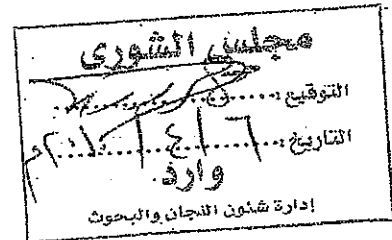 مجلس الشورى
التوقيع:
التاريخ: ٦ / ٤ / ٢٠١٠م
وارد
إدارة شئون اللجان والبحوث